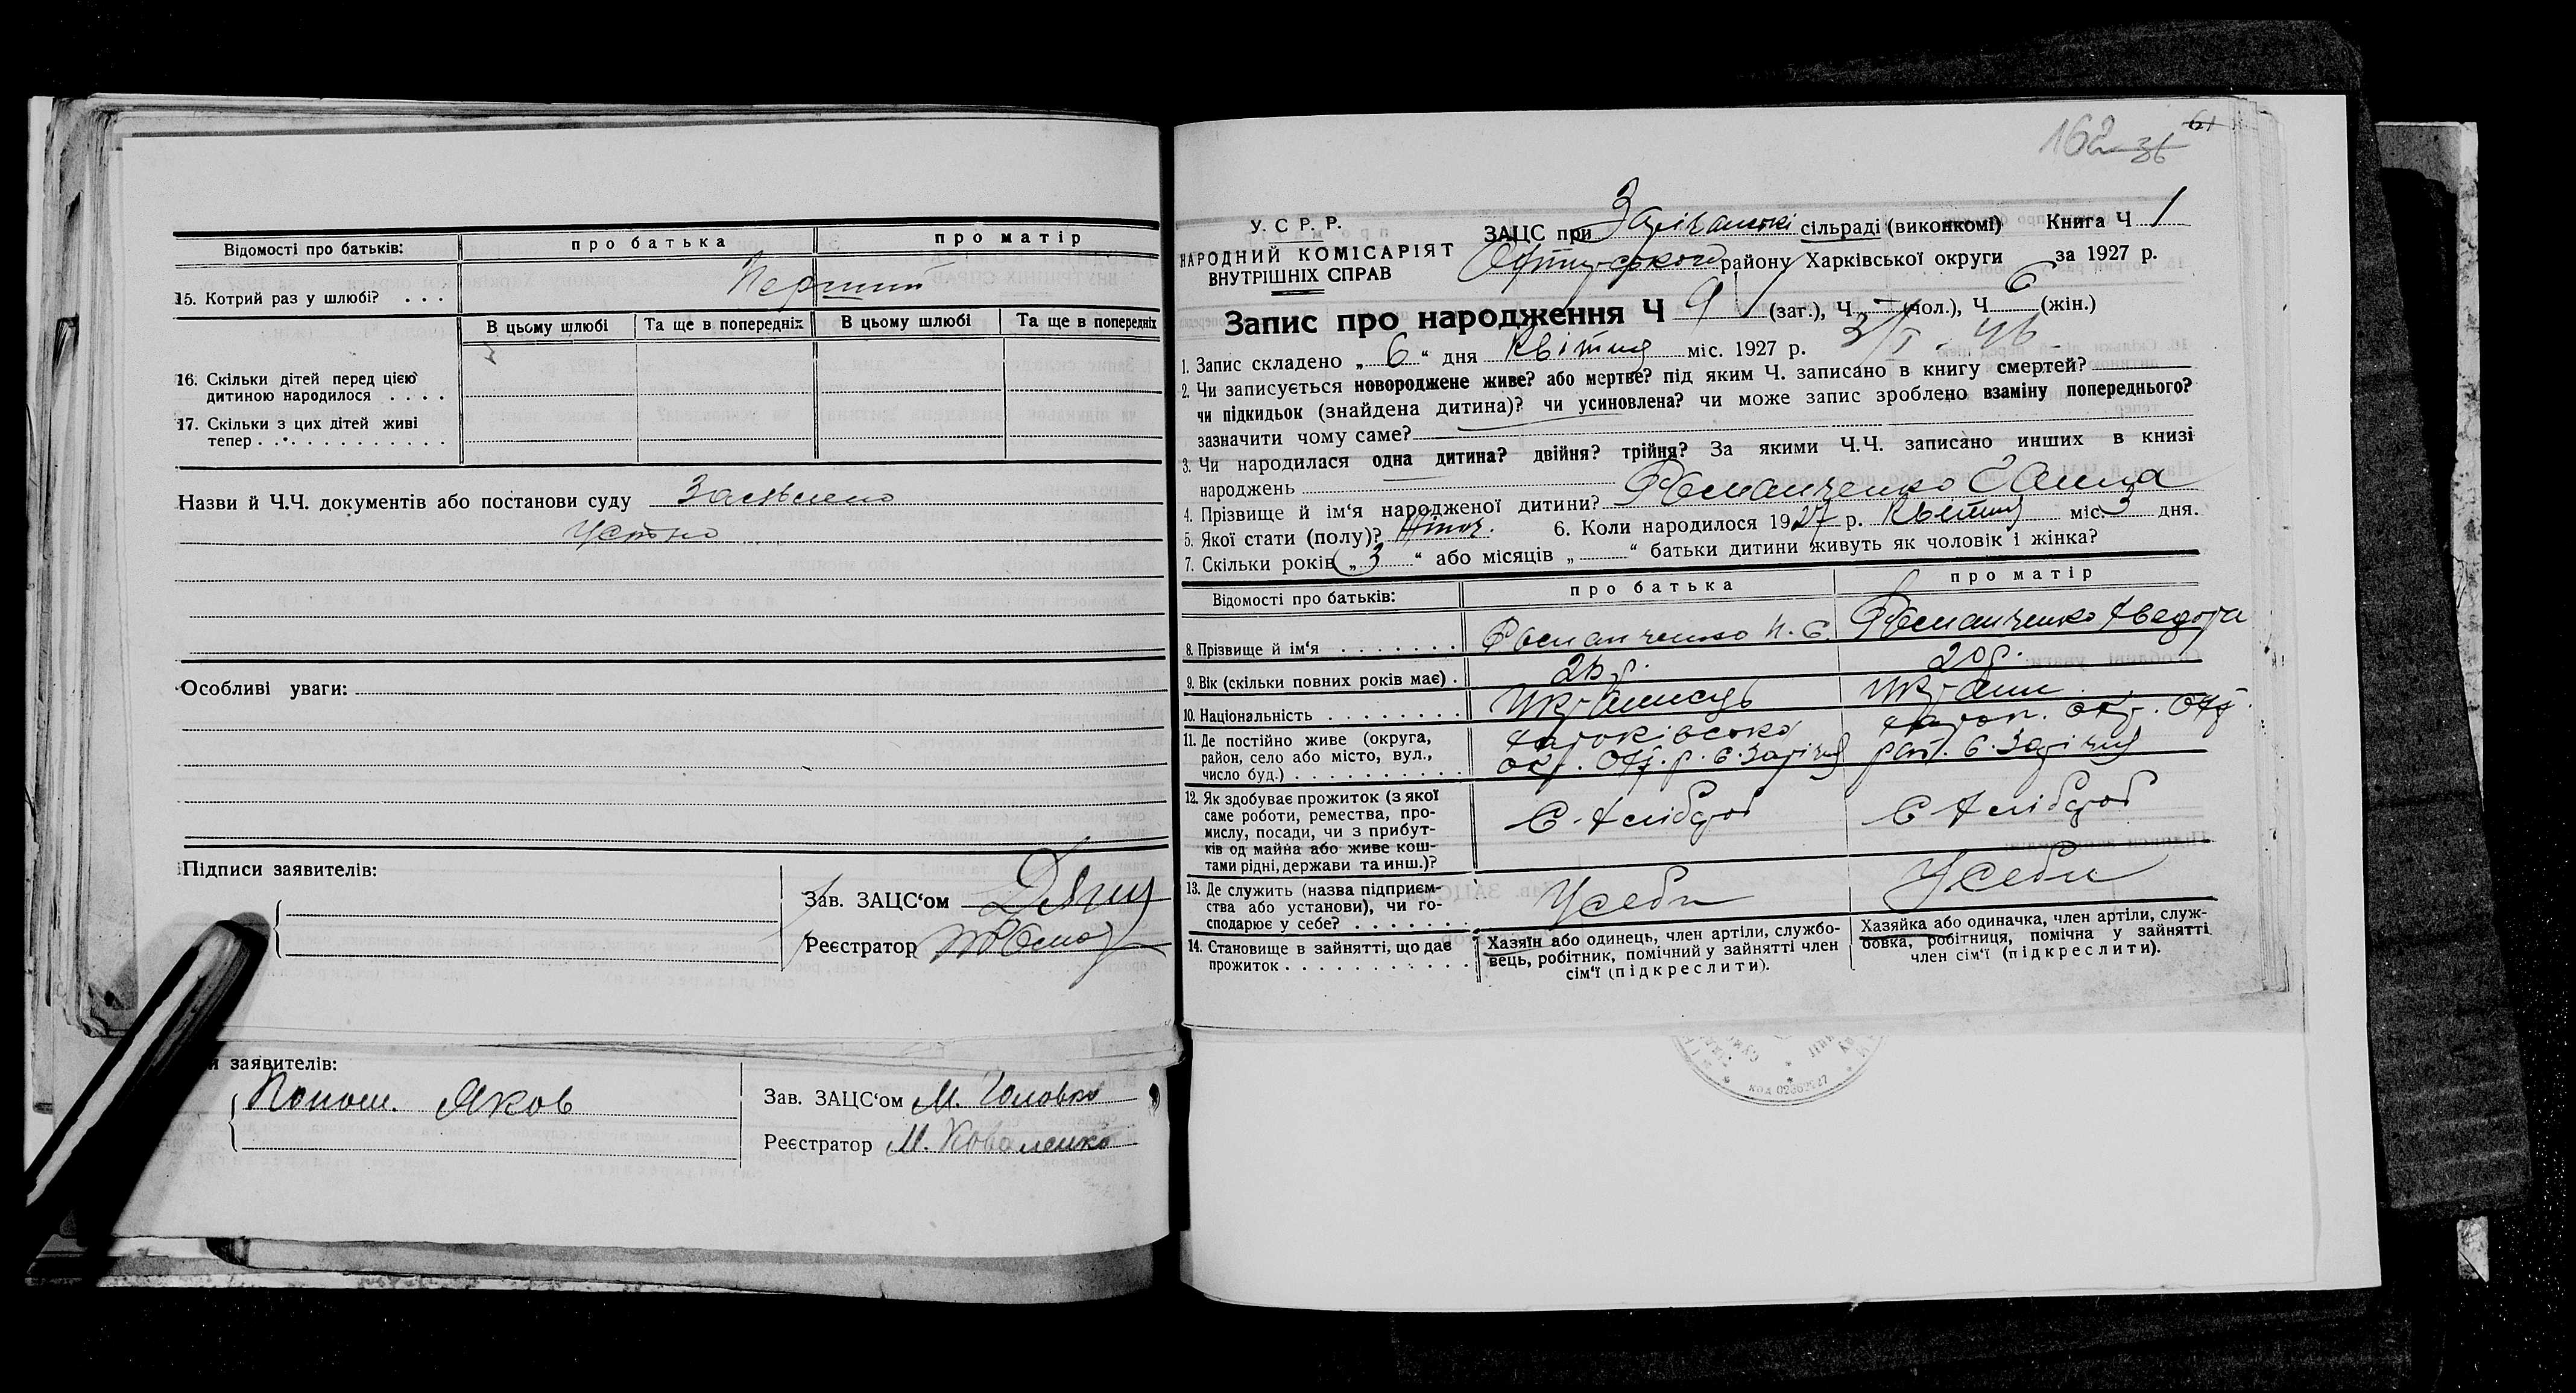 Відомості про батьків:
про батька
про матір
15. Котрий раз у шлюбі? . . .
Перший
В цьому шлюбі
Та ще в попередніх
В цьому шлюбі
Та ще в попередніх
16. Скільки дітей перед цією
дитиною народилося . . . .
17. Скільки з цих дітей живі
тепер . . . . . . . . . . . .
Назви й Ч.Ч. документів або постанови суду Заявлено
Устно
Особливі уваги:
Підписи заявителів:
Зав. ЗАЦС‘ом
Реєстратор
заявителів:
Яков
Зав. ЗАЦС‘ом М. Головко
Реєстратор М. Коваленко
162 36 61
У. С. Р. Р.
НАРОДНИЙ КОМІСАРІЯТ
ВНУТРІШНІХ СПРАВ
ЗАЦС при сільраді (виконкомі) Книга Ч 1
району Харківської округи за 1927 р.
Запис про народження Ч 9 (заг.), Ч 3 (чол.), Ч 6 (жін.)
1. Запис складено „ 6 “ дня Квітня міс. 1927 р.
2. Чи записується новороджене живе? або мертве? під яким Ч. записано в книгу смертей?
чи підкидьок (знайдена дитина)? чи усиновлена? чи може запис зроблено взаміну попереднього?
зазначити чому саме?
3. Чи народилася одна дитина? двійня? трійня? За якими Ч.Ч. записано инших в книзі
народжень
4. Прізвище й ім‘я народженої дитини? Романченко Ганна
5. Якої стати (полу)? Жіноч. 6. Коли народилося 1927 р. Квітня міс. 3 дня.
7. Скільки років „ 3 “ або місяців „ “ батьки дитини живуть як чоловік і жінка?
Відомості про батьків:
про батька
про матір
8. Прізвище й ім‘я . . . . . . .
Романченко П. Є.
Романченко Явдоха
9. Вік (скільки повних років має) .
20 р.
10. Національність . . . . . . . .
Українець
Україн
11. Де постійно живе (округа,
район, село або місто, вул.,
число буд.) . . . . . . . . . .
Харківсько
окр. Охт. р. с. Заріччя
Харк. окр. Охт.
рай. с. Заріччя
12. Як здобуває прожиток (з якої
саме роботи, ремества, про-
мислу, посади, чи з прибут-
ків од майна або живе кош-
тами рідні, держави та инш.)?
С. Хлібороб
С Хлібороб
13. Де служить (назва підприєм-
ства або установи), чи го-
сподарює у себе? . . . . . .
У себе
У себе
14. Становище в зайнятті, що дає
прожиток . . . . . . . . . . .
Хазяїн або одинець, член артіли, службо-
вець, робітник, помічний у зайнятті член
сім‘ї (підкреслити).
Хазяйка або одиначка, член артіли, служ-
бовка, робітниця, помічна у зайнятті
член сім‘ї (підкреслити).